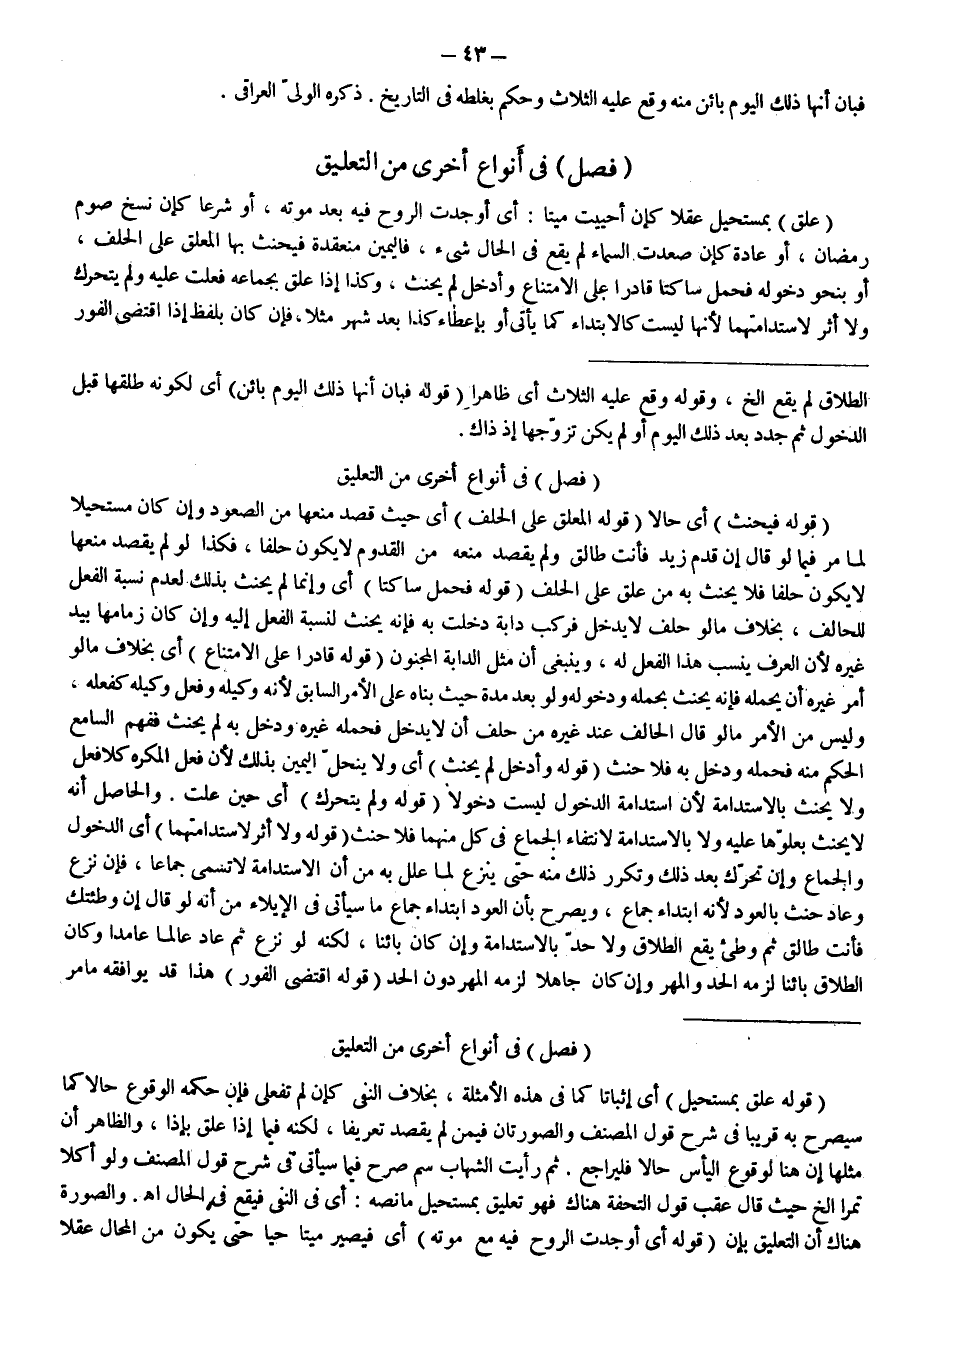 – ٤٣ –
فبان أنها ذلك اليوم بائن منه وقع عليه الثلاث وحكم بغلطه فى التاريخ . ذكره الولىّ العراقى .
( فصل ) فى أنواع أخرى من التعليق
( علق ) بمستحيل عقلا كإن أحييت ميتا : أى أوجدت الروح فيه بعد موته ، أو شرعا كإن نسخ صوم
رمضان ، أو عادة كإن صعدت السماء لم يقع فى الحال شىء ، فاليمين منعقدة فيحنث بها المعلق على الحلف ،
أو بنحو دخوله فحمل ساكتا قادرا على الامتناع وأدخل لم يحنث ، وكذا إذا علق بجماعه فعلت عليه ولم يتحرك
ولا أثر لاستدامتهما لأنها ليست كالابتداء كما يأتى أو بإعطاء كذا بعد شهر مثلا ، فإن كان بلفظ إذا اقتضى الفور
الطلاق لم يقع الخ ، وقوله وقع عليه الثلاث أى ظاهرا ( قوله فبان أنها ذلك اليوم بائن ) أى لكونه طلقها قبل
الدخول ثم جدد بعد ذلك اليوم أو لم يكن تزوّجها إذ ذاك .
( فصل ) فى أنواع أخرى من التعليق
( قوله فيحنث ) أى حالا ( قوله المعلق على الحلف ) أى حيث قصد منعها من الصعود وإن كان مستحيلا
لما مر فيما لو قال إن قدم زيد فأنت طالق ولم يقصد منعه من القدوم لايكون حلفا ، فكذا لو لم يقصد منعها
لايكون حلفا فلا يحنث به من علق على الحلف ( قوله فحمل ساكتا ) أى وإنما لم يحنث بذلك لعدم نسبة الفعل
للحالف ، بخلاف مالو حلف لايدخل فركب دابة دخلت به فإنه يحنث لنسبة الفعل إليه وإن كان زمامها بيد
غيره لأن العرف ينسب هذا الفعل له ، وينبغى أن مثل الدابة المجنون ( قوله قادرا على الامتناع ) أى بخلاف مالو
أمر غيره أن يحمله فإنه يحنث بحمله ودخوله ولو بعد مدة حيث بناه على الأمر السابق لأنه وكيله وفعل وكيله كفعله ،
وليس من الأمر مالو قال الحالف عند غيره من حلف أن لايدخل فحمله غيره ودخل به لم يحنث ففهم السامع
الحكم منه فحمله ودخل به فلا حنث ( قوله وأدخل لم يحنث ) أى ولا ينحلّ اليمين بذلك لأن فعل المكره كلافعل
ولا يحنث بالاستدامة لأن استدامة الدخول ليست دخولا ( قوله ولم يتحرك ) أى حين علت . والحاصل أنه
لايحنث بعلوّها عليه ولا بالاستدامة لانتفاء الجماع فى كل منهما فلا حنث ( قوله ولا أثر لاستدامتهما ) أى الدخول
والجماع وإن تحرّك بعد ذلك وتكرر ذلك منه حتى ينزع لما علل به من أن الاستدامة لاتسمى جماعا ، فإن نزع
وعاد حنث بالعود لأنه ابتداء جماع ، ويصرح بأن العود ابتداء جماع ما سيأتى فى الإيلاء من أنه لو قال إن وطئتك
فأنت طالق ثم وطئ يقع الطلاق ولا حدّ بالاستدامة وإن كان بائنا ، لكنه لو نزع ثم عاد عالما عامدا وكان
الطلاق بائنا لزمه الحد والمهر وإن كان جاهلا لزمه المهر دون الحد ( قوله اقتضى الفور ) هذا قد يوافقه مامر
( فصل ) فى أنواع أخرى من التعليق
( قوله علق بمستحيل ) أى إثباتا كما فى هذه الأمثلة ، بخلاف النفى كإن لم تفعلى فإن حكمه الوقوع حالا كما
سيصرح به قريبا فى شرح قول المصنف والصورتان فيمن لم يقصد تعريفا ، لكنه فيما إذا علق بإذا ، والظاهر أن
مثلها إن هنا لوقوع اليأس حالا فليراجع . ثم رأيت الشهاب سم صرح فيما سيأتى فى شرح قول المصنف ولو أكلا
تمرا الخ حيث قال عقب قول التحفة هناك فهو تعليق بمستحيل مانصه : أى فى النفى فيقع فى الحال اهـ . والصورة
هناك أن التعليق بإن ( قوله أى أوجدت الروح فيه مع موته ) أى فيصير ميتا حيا حتى يكون من المحال عقلا